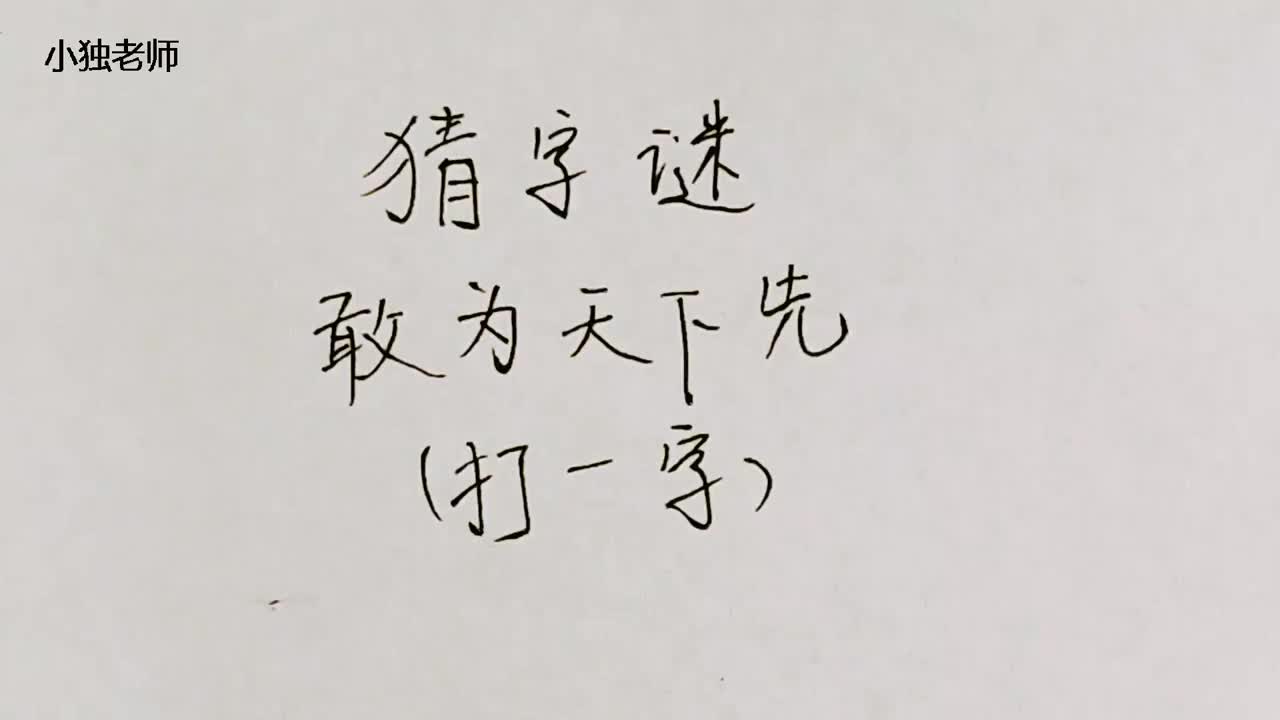 小独老师
猜字谜
敢为天下先
(打一字)